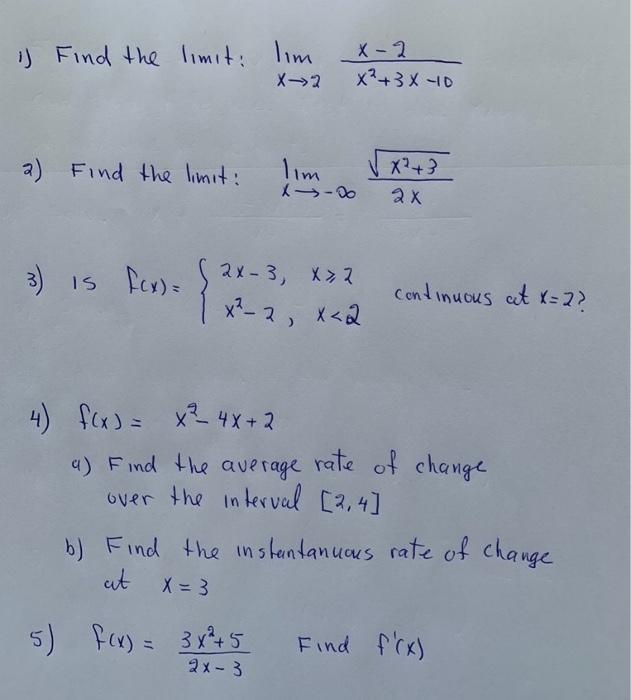 1) Find the limit: lim x→2 (x-2)/(x²+3x-10)
2) Find the limit: lim x→-∞ √(x²+3)/(2x)
3) is f(x) = { 2x-3, x≥2
x²-2, x<2
continuous at x=2?
4) f(x) = x²-4x+2
a) Find the average rate of change
over the interval [2,4]
b) Find the instantanuous rate of change
at x = 3
5) f(x) = (3x²+5)/(2x-3) Find f'(x)